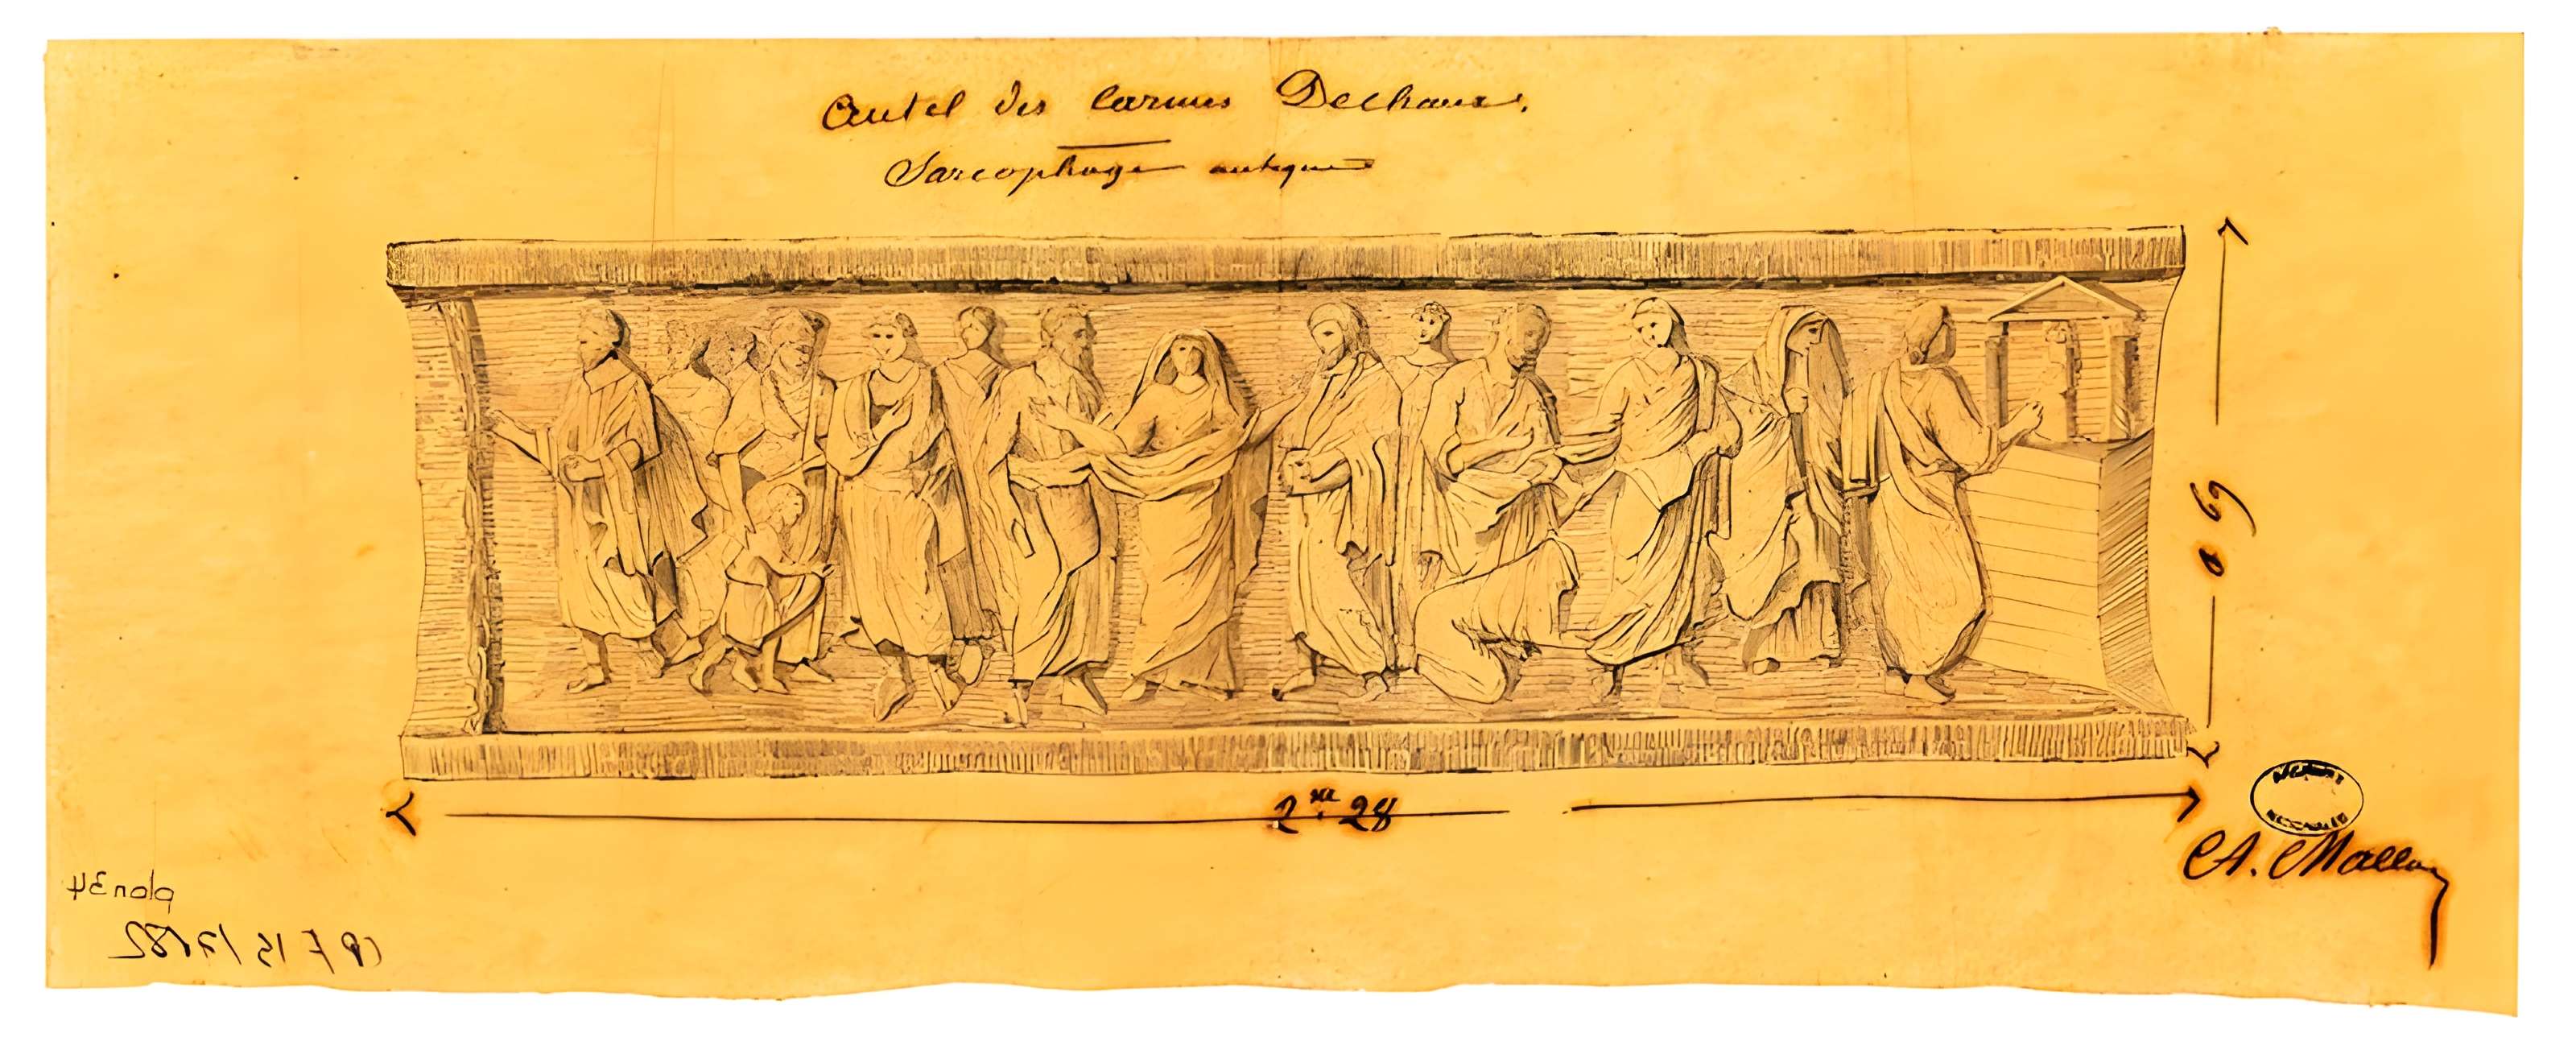 Autel des Carmes Dechaux.
Sarcophage antique
0 69
2m. 28
A. Mallay
plan 34
CP F 15/7682